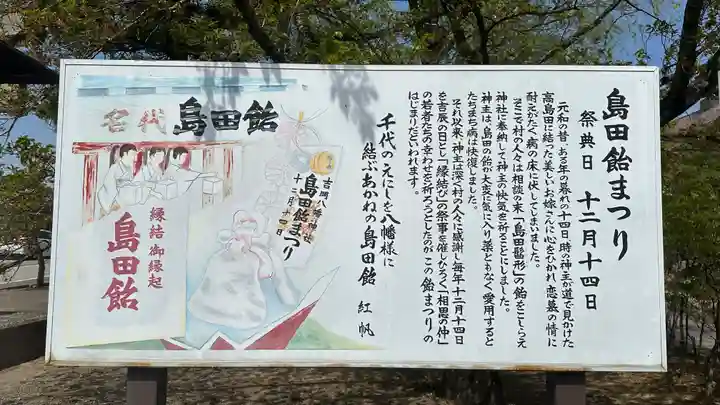 島田飴まつり
祭典日 十二月十四日
元和の昔、ある年の暮れの十四日、時の神主が道で見かけた
高島田に結った美しいお嫁さんに心をひかれ、恋慕の情に
耐えがたく病の床に伏してしまいました。
そこで村の人々は相談の末、「島田髷形」の飴をこしらえ
神社に奉納して神主の快気を祈ることにしました。
神主は、島田の飴が大変に気に入り薬ともなく愛用すると
たちまち病は快復しました。
それ以来、神主は深く村の人々に感謝し毎年十二月十四日
を吉辰の日とし「縁結び」の祭事を催しひろく「相思の仲」
の若者たちの幸わせを祈ろうとしたのがこの飴まつりの
はじまりだといわれます。
千代のえにしを八幡様に
結ぶあかねの島田飴 紅帆
名代 島田飴
吉岡八幡神社
島田飴まつり
十二月十四日
縁結 御縁起
島田飴